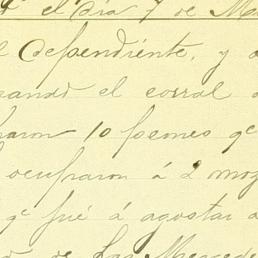 el Dia 7 de
Dependiente, y
el corral
10 peones qe
ocuparon á 2 moz
qe fué á agostar a
de Las Mercede